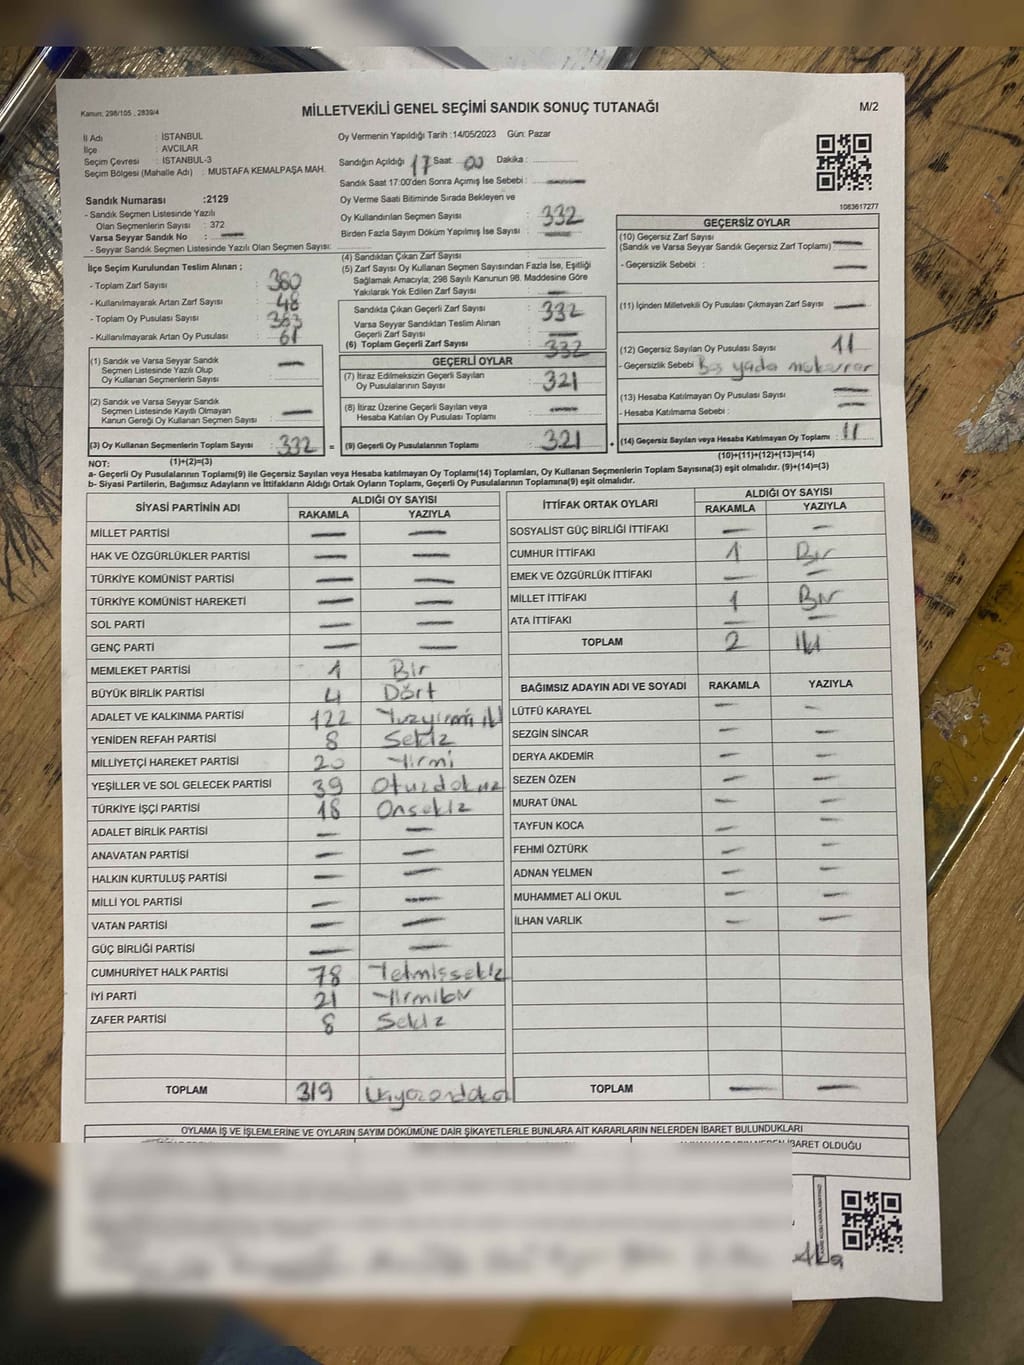 Kanun: 298/105 , 2839/4
MİLLETVEKİLİ GENEL SEÇİMİ SANDIK SONUÇ TUTANAĞI
M/2
İl Adı : İSTANBUL
İlçe : AVCILAR
Seçim Çevresi : İSTANBUL-3
Seçim Bölgesi (Mahalle Adı) : MUSTAFA KEMALPAŞA MAH.
Oy Vermenin Yapıldığı Tarih :14/05/2023 Gün: Pazar
Sandığın Açıldığı 17 Saat 00 Dakika :
Sandık Saat 17:00'den Sonra Açımış İse Sebebi : —
1083617277
Sandık Numarası :2129
- Sandık Seçmen Listesinde Yazılı
Olan Seçmenlerin Sayısı : 372
Varsa Seyyar Sandık No : —
- Seyyar Sandık Seçmen Listesinde Yazılı Olan Seçmen Sayısı:
Oy Verme Saati Bitiminde Sırada Bekleyen ve
Oy Kullandırılan Seçmen Sayısı : 332
Birden Fazla Sayım Döküm Yapılmış İse Sayısı : —
İlçe Seçim Kurulundan Teslim Alınan ;
- Toplam Zarf Sayısı : 380
- Kullanılmayarak Artan Zarf Sayısı : 48
- Toplam Oy Pusulası Sayısı : 383
- Kullanılmayarak Artan Oy Pusulası : 61
(1) Sandık ve Varsa Seyyar Sandık
Seçmen Listesinde Yazılı Olup
Oy Kullanan Seçmenlerin Sayısı : —
(2) Sandık ve Varsa Seyyar Sandık
Seçmen Listesinde Kayıtlı Olmayan
Kanun Gereği Oy Kullanan Seçmen Sayısı : —
(3) Oy Kullanan Seçmenlerin Toplam Sayısı : 332 =
(1)+(2)=(3)
(4) Sandıktan Çıkan Zarf Sayısı :
(5) Zarf Sayısı Oy Kullanan Seçmen Sayısından Fazla İse, Eşitliği
Sağlamak Amacıyla; 298 Sayılı Kanunun 98. Maddesine Göre
Yakılarak Yok Edilen Zarf Sayısı : —
Sandıkta Çıkan Geçerli Zarf Sayısı : 332
Varsa Seyyar Sandıktan Teslim Alınan
Geçerli Zarf Sayısı : —
(6) Toplam Geçerli Zarf Sayısı : 332
GEÇERLİ OYLAR
(7) İtiraz Edilmeksizin Geçerli Sayılan
Oy Pusulalarının Sayısı : 321
(8) İtiraz Üzerine Geçerli Sayılan veya
Hesaba Katılan Oy Pusulası Toplamı : —
(9) Geçerli Oy Pusulalarının Toplamı : 321 +
GEÇERSİZ OYLAR
(10) Geçersiz Zarf Sayısı
(Sandık ve Varsa Seyyar Sandık Geçersiz Zarf Toplamı) : —
- Geçersizlik Sebebi : —
(11) İçinden Milletvekili Oy Pusulası Çıkmayan Zarf Sayısı : —
(12) Geçersiz Sayılan Oy Pusulası Sayısı : 11
- Geçersizlik Sebebi Boş yada mükerrer
(13) Hesaba Katılmayan Oy Pusulası Sayısı : —
- Hesaba Katılmama Sebebi : —
(14) Geçersiz Sayılan veya Hesaba Katılmayan Oy Toplamı : 11
(10)+(11)+(12)+(13)=(14)
NOT:
a- Geçerli Oy Pusulalarının Toplamı(9) ile Geçersiz Sayılan veya Hesaba katılmayan Oy Toplamı(14) Toplamları, Oy Kullanan Seçmenlerin Toplam Sayısına(3) eşit olmalıdır. (9)+(14)=(3)
b- Siyasi Partilerin, Bağımsız Adayların ve İttifakların Aldığı Oyların Toplamı, Geçerli Oy Pusulalarının Toplamına(9) eşit olmalıdır.
SİYASİ PARTİNİN ADI ALDIĞI OY SAYISI
RAKAMLA YAZIYLA
MİLLET PARTİSİ — —
HAK VE ÖZGÜRLÜKLER PARTİSİ — —
TÜRKİYE KOMÜNİST PARTİSİ — —
TÜRKİYE KOMÜNİST HAREKETİ — —
SOL PARTİ — —
GENÇ PARTİ — —
MEMLEKET PARTİSİ 1 Bir
BÜYÜK BİRLİK PARTİSİ 4 Dört
ADALET VE KALKINMA PARTİSİ 122 Yüzyirmi iki
YENİDEN REFAH PARTİSİ 8 Sekiz
MİLLİYETÇİ HAREKET PARTİSİ 20 Yirmi
YEŞİLLER VE SOL GELECEK PARTİSİ 39 Otuzdokuz
TÜRKİYE İŞÇİ PARTİSİ 18 Onsekiz
ADALET BİRLİK PARTİSİ — —
ANAVATAN PARTİSİ — —
HALKIN KURTULUŞ PARTİSİ — —
MİLLİ YOL PARTİSİ — —
VATAN PARTİSİ — —
GÜÇ BİRLİĞİ PARTİSİ — —
CUMHURİYET HALK PARTİSİ 78 Yetmişsekiz
İYİ PARTİ 21 Yirmibir
ZAFER PARTİSİ 8 Sekiz
TOPLAM 319 Üçyüzondokuz
İTTİFAK ORTAK OYLARI ALDIĞI OY SAYISI
RAKAMLA YAZIYLA
SOSYALİST GÜÇ BİRLİĞİ İTTİFAKI — —
CUMHUR İTTİFAKI 1 Bir
EMEK VE ÖZGÜRLÜK İTTİFAKI — —
MİLLET İTTİFAKI 1 Bir
ATA İTTİFAKI — —
TOPLAM 2 İki
BAĞIMSIZ ADAYIN ADI VE SOYADI RAKAMLA YAZIYLA
LÜTFÜ KARAYEL — —
SEZGİN SİNCAR — —
DERYA AKDEMİR — —
SEZEN ÖZEN — —
MURAT ÜNAL — —
TAYFUN KOCA — —
FEHMİ ÖZTÜRK — —
ADNAN YELMEN — —
MUHAMMET ALİ OKUL — —
İLHAN VARLIK — —
TOPLAM — —
OYLAMA İŞ VE İŞLEMLERİNE VE OYLARIN SAYIM DÖKÜMÜNE DAİR ŞİKAYETLERLE BUNLARA AİT KARARLARIN NELERDEN İBARET BULUNDUKLARI
İBARET OLDUĞU